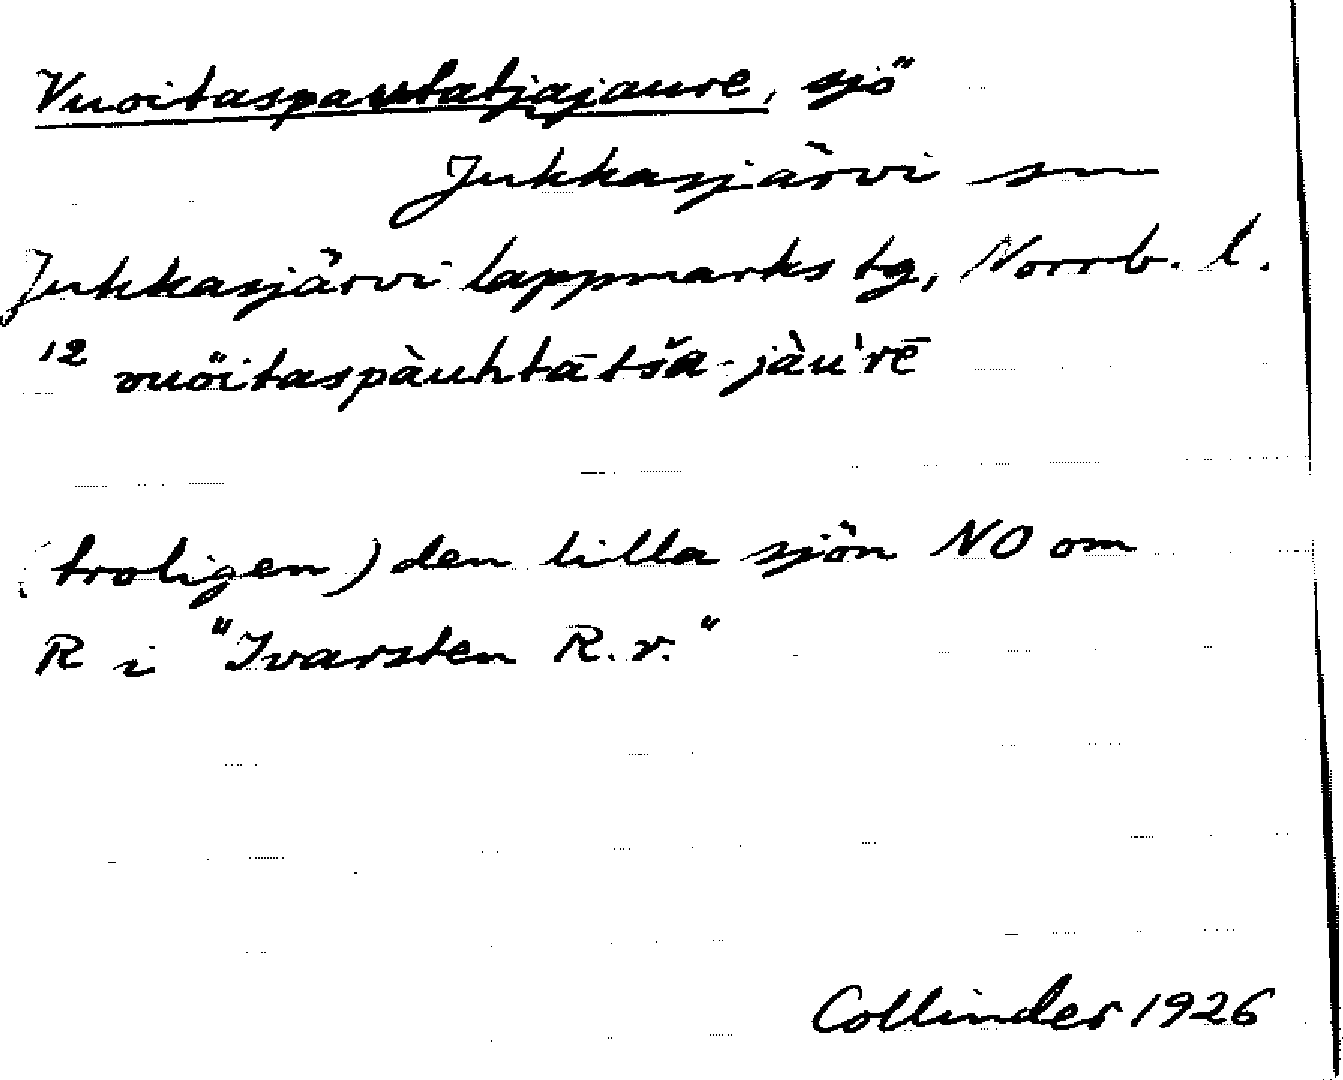 Vuoitaspautatjajaure, sjö
Jukkasjärvi sn
Jukkasjärvi lappmarks tg, Norrb. l.
12 vuöitaspàuhtātša-jàu'rē
(troligen) den lilla sjön NO om
R i "Ivarsten R.v."
Collinder 1926